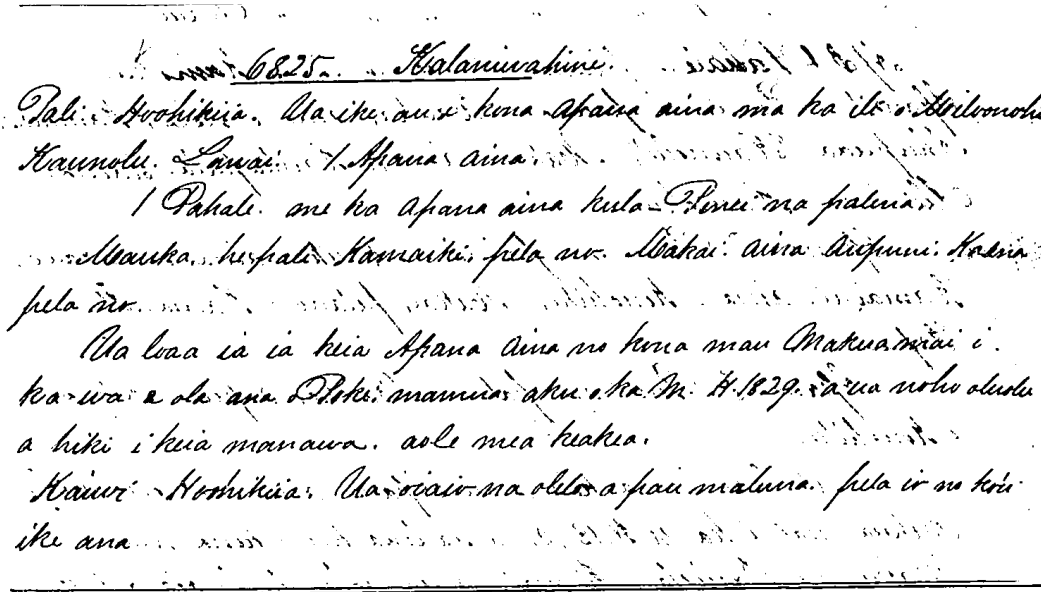 6825. Kalaniwahine.
Pali. Hoohikiia. Ua ike au i kona Apana aina ma ka ili o
Kaunolu. Lanai. 1 Apana aina.
1 Pahale. me ka apana aina kula. Penei na palena.
Mauka, he pali. Kamaiki, pela no. Makai. aina Aupuni. Kaena
pela no.
Ua loaa ia ia keia Apana Aina no kona mau Makua mai i
ka wa e ola ana o Hoki. mamua aku o ka M. H. 1829. a ua noho oluolu
a hiki i keia manawa. aole mea keakea.
Kaiwi. Hoohikiia. Ua oiaio na olelo a pau maluna. pela io no kou
ike ana